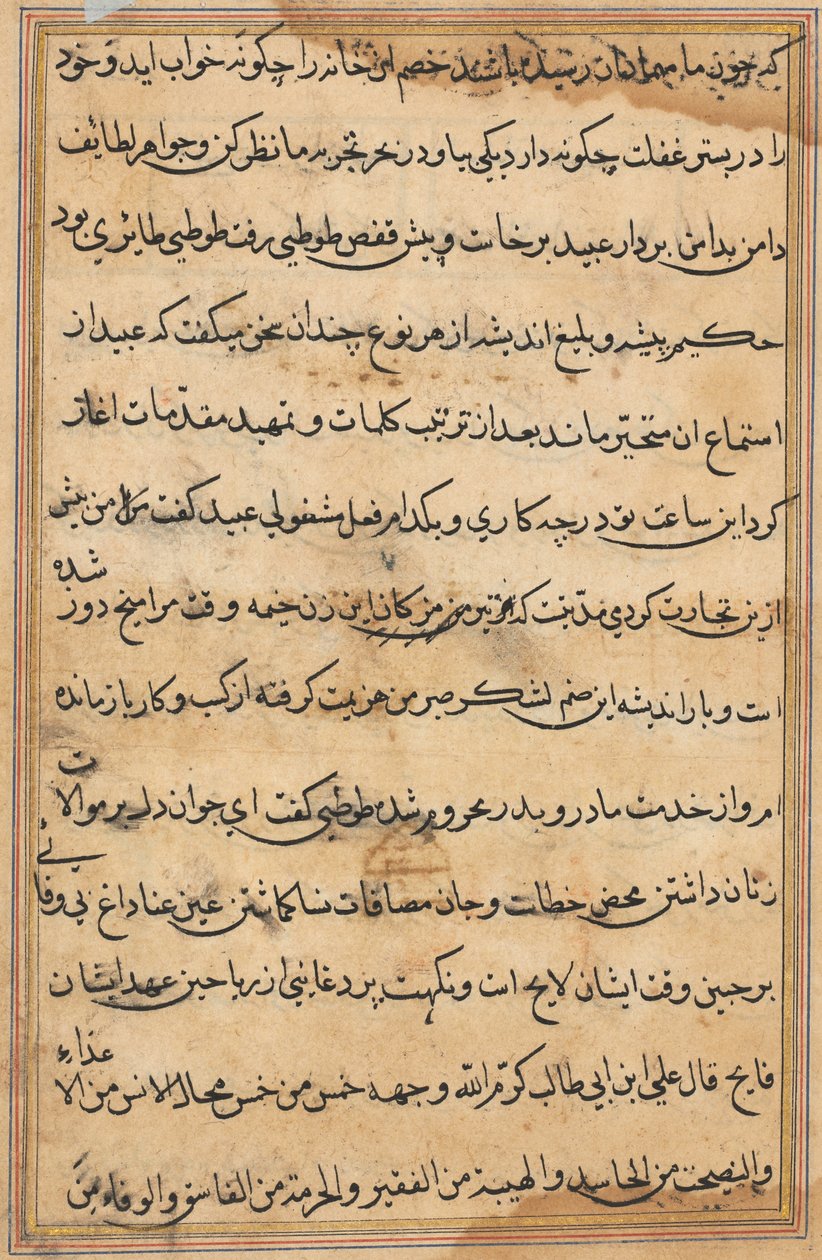 که چون ما مهمانان رسیده باشند خصم این خانه را چکونه خواب اید و خود
را در بستر غفلت چکونه دارد یکی بیا و در بحر تجربه ما نظر کن و جواهر لطائف
دامن بدامن بردار عبید برخاست و پیش قفص طوطیی رفت طوطیی طائری بود
حکیم پیشه و بلیغ اندیشه از هر نوع چندان سخن میکفت که عبید از
استماع ان متحیّر ماند بعد از ترتیب کلمات و تمهید مقدّمات اغاز
کرد این ساعت تو در چه کاری و بکدام فعل مشغولی عبید کفت من پیش
ازین تجارت کردمی مدّتیست که تیر مژکان این زن خیمه وقت مرا میخ دوز شده
است و بار اندیشه این صنم لشکر صبر من هزیمت کرفته از کسب و کار باز مانده
ام و از خدمت مادر و پدر محروم شده طوطی کفت ای جوان دل بر موالات
زنان داشتن محض خطاست و جان مصافات نسا کماشتن عین عنا داغ بی وفائی
بر جبین وقت ایشان لایح است و نکهت پر دغایئی از ریاحین عهد ایشان
فایح قال علی ابن ابی طالب کرّم الله وجهه خمس من خمس محال الانس من الاعداء
والنصیحت من الحاسد والهیبة من الفقیر والحرمة من الفاسق والوفاء من